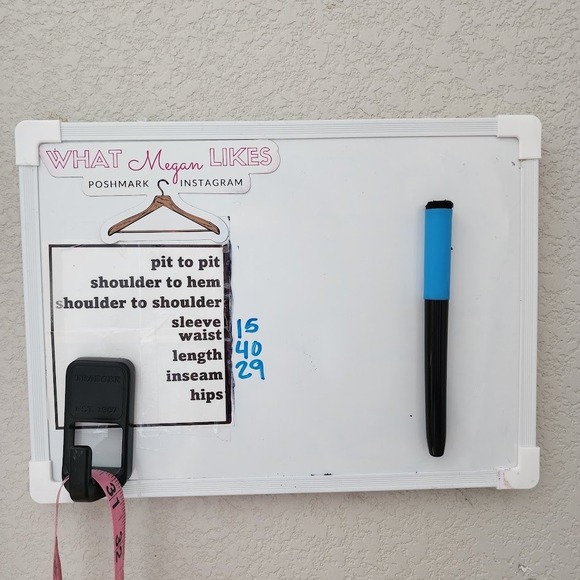 WHAT Megan LIKES
POSHMARK INSTAGRAM
pit to pit
shoulder to hem
shoulder to shoulder
sleeve
waist 15
length 40
inseam 29
hips
31
32